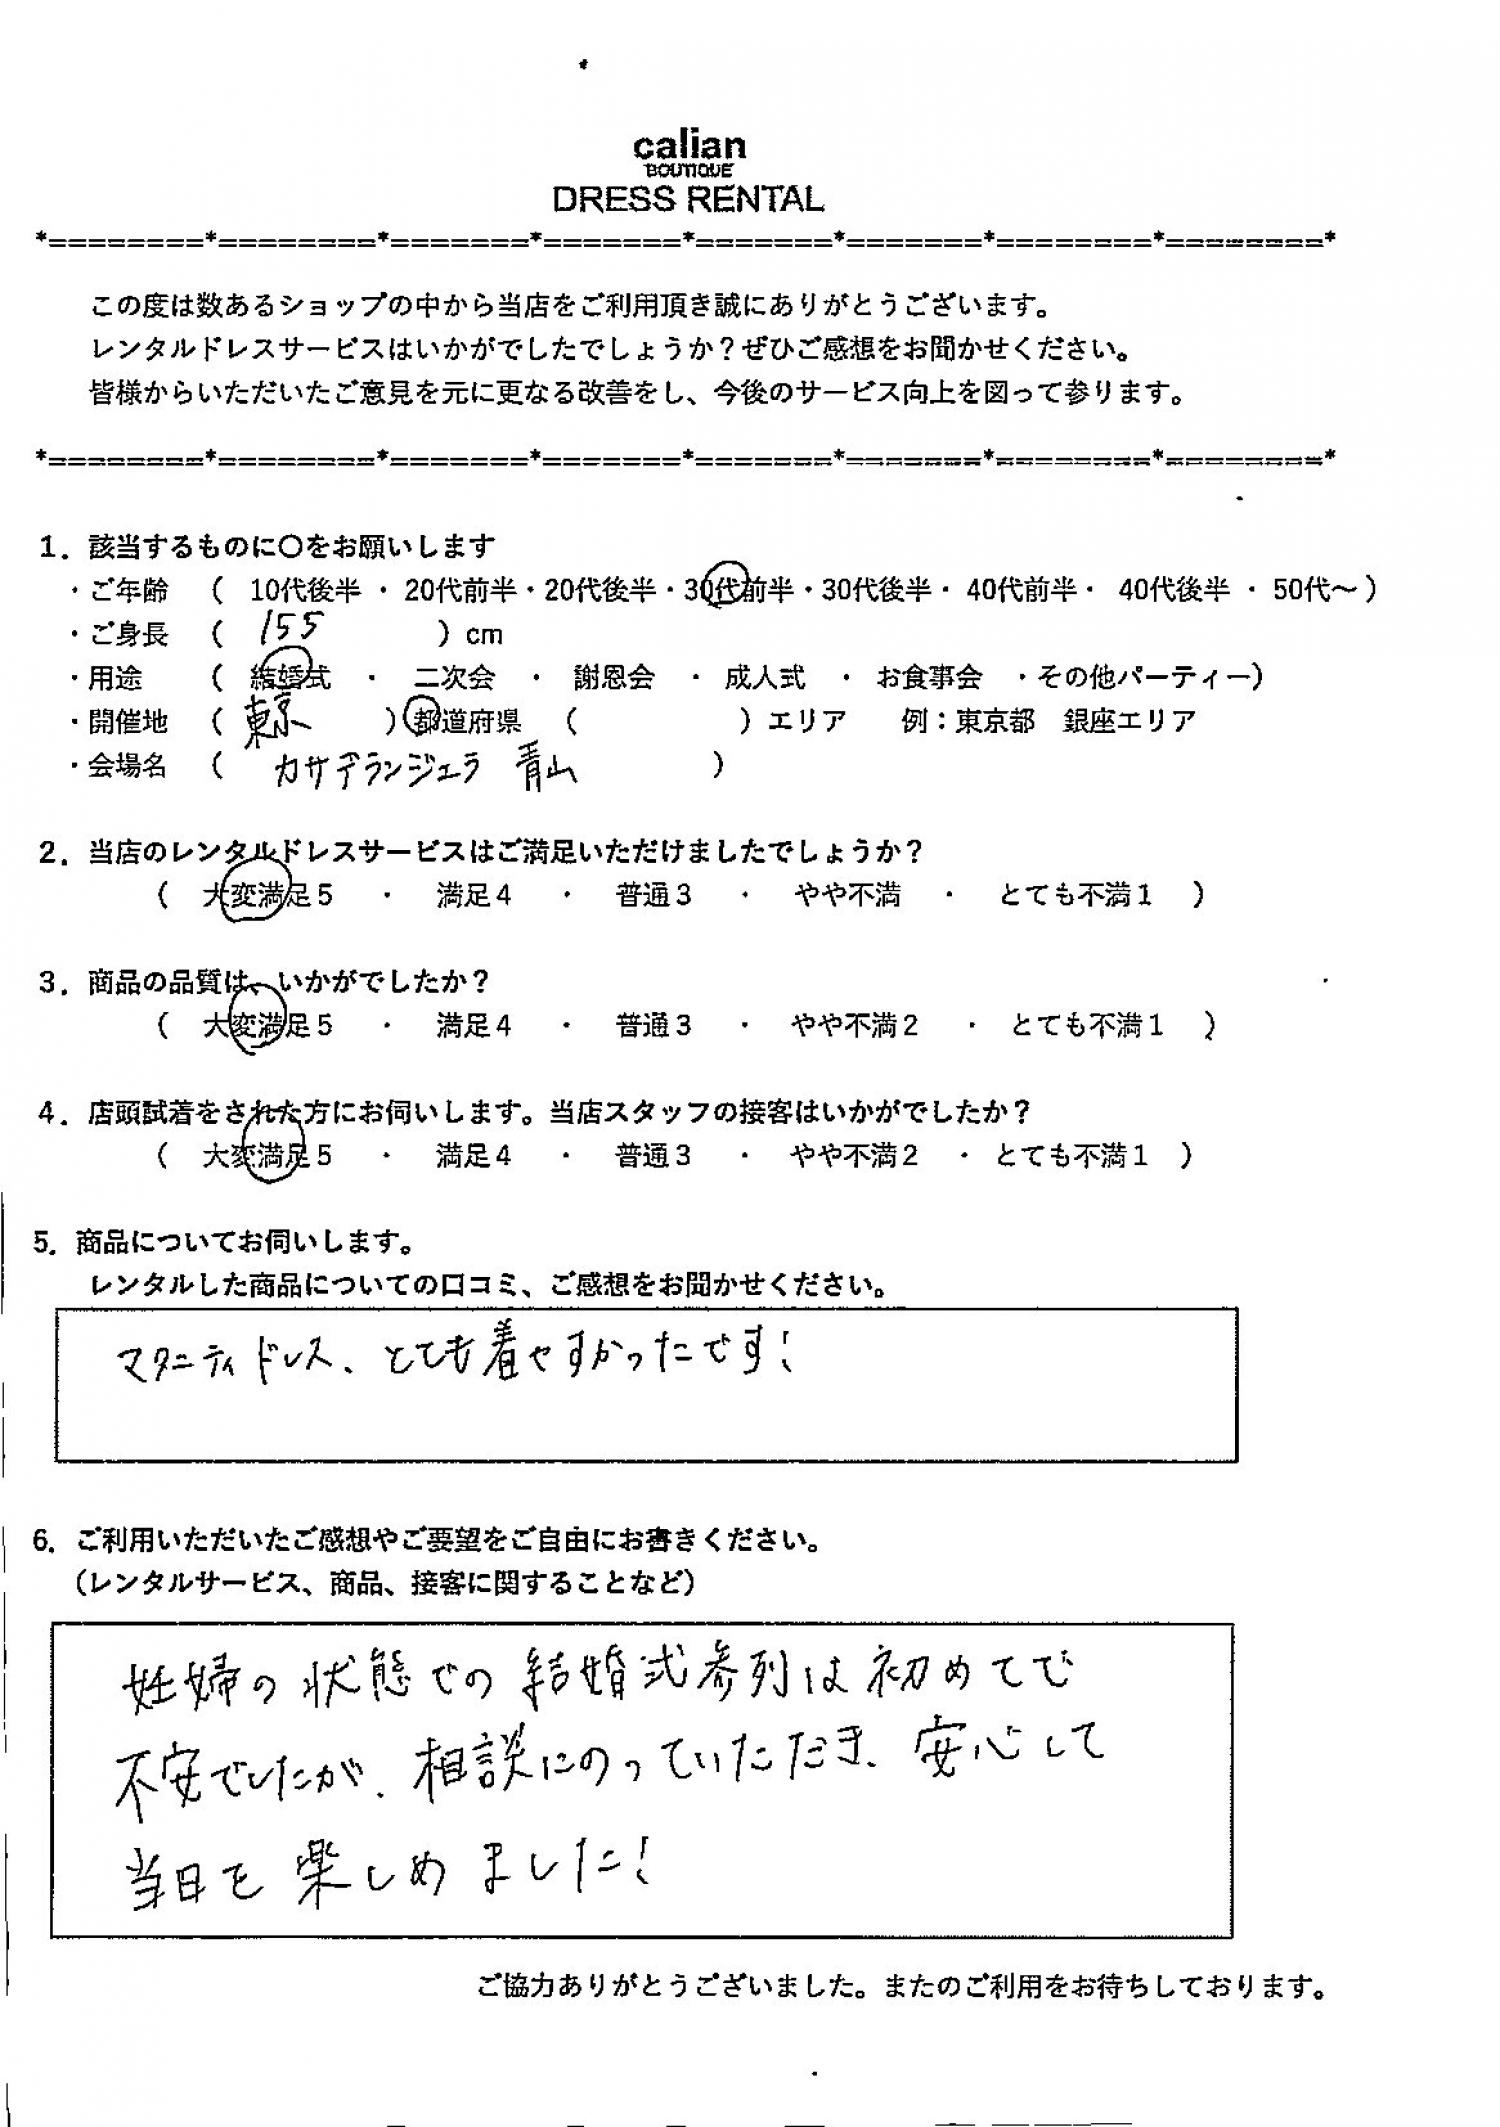 calian
BOUTIQUE
DRESS RENTAL
*========*========*=======*=======*=======*=======*========*========*
この度は数あるショップの中から当店をご利用頂き誠にありがとうございます。
レンタルドレスサービスはいかがでしたでしょうか？ぜひご感想をお聞かせください。
皆様からいただいたご意見を元に更なる改善をし、今後のサービス向上を図って参ります。
*========*========*=======*=======*=======*=======*========*========*
1．該当するものに〇をお願いします
・ご年齢 （ 10代後半 ・ 20代前半・20代後半・30代前半・30代後半・ 40代前半・ 40代後半 ・ 50代～）
・ご身長 （ 155 ）cm
・用途 （ 結婚式 ・ 二次会 ・ 謝恩会 ・ 成人式 ・ お食事会 ・その他パーティー）
・開催地 （ 東京 ）都道府県 （ ）エリア 例：東京都 銀座エリア
・会場名 （ カサデランジェラ 青山 ）
2．当店のレンタルドレスサービスはご満足いただけましたでしょうか？
（ 大変満足5 ・ 満足4 ・ 普通3 ・ やや不満 ・ とても不満1 ）
3．商品の品質は、いかがでしたか？
（ 大変満足5 ・ 満足4 ・ 普通3 ・ やや不満2 ・ とても不満1 ）
4．店頭試着をされた方にお伺いします。当店スタッフの接客はいかがでしたか？
（ 大変満足5 ・ 満足4 ・ 普通3 ・ やや不満2 ・ とても不満1 ）
5．商品についてお伺いします。
レンタルした商品についての口コミ、ご感想をお聞かせください。
マタニティドレス、とても着やすかったです！
6．ご利用いただいたご感想やご要望をご自由にお書きください。
（レンタルサービス、商品、接客に関することなど）
妊婦の状態での結婚式参列は初めてで
不安でしたが、相談にのっていただき、安心して
当日を楽しめました！
ご協力ありがとうございました。またのご利用をお待ちしております。